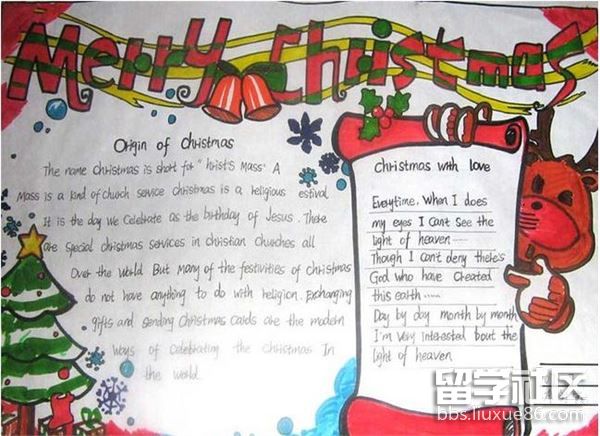 Merry Christmas
Origin of christmas
The name christmas is short for "hrist's Mass" A
Mass is a kind of church service christmas is a religious estival
It is the day we celebrate as the birthday of Jesus. There
are special christmas services in christian churches all
Over the world But many of the festivities of christmas
do not have anything to do with religion. Exchanging
gifts and sending Christmas cards are the modern
ways of celebrating the christmas In
the world.
christmas with love
Everytime, When I does
my eyes I can't see the
light of heaven......
Though I can't deny there's
God who have created
this earth......
Day by day month by month
I'm very interested bout the
light of heaven
留学社区
bbs.liuxue86.com